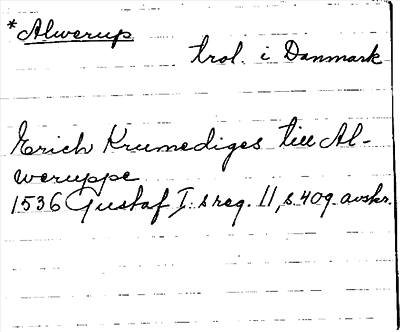 * Alwerup
trol. i Danmark
Erich Krumediges till Al-
weruppe
1536 Gustaf I:s reg. 11, s. 409. avskr.